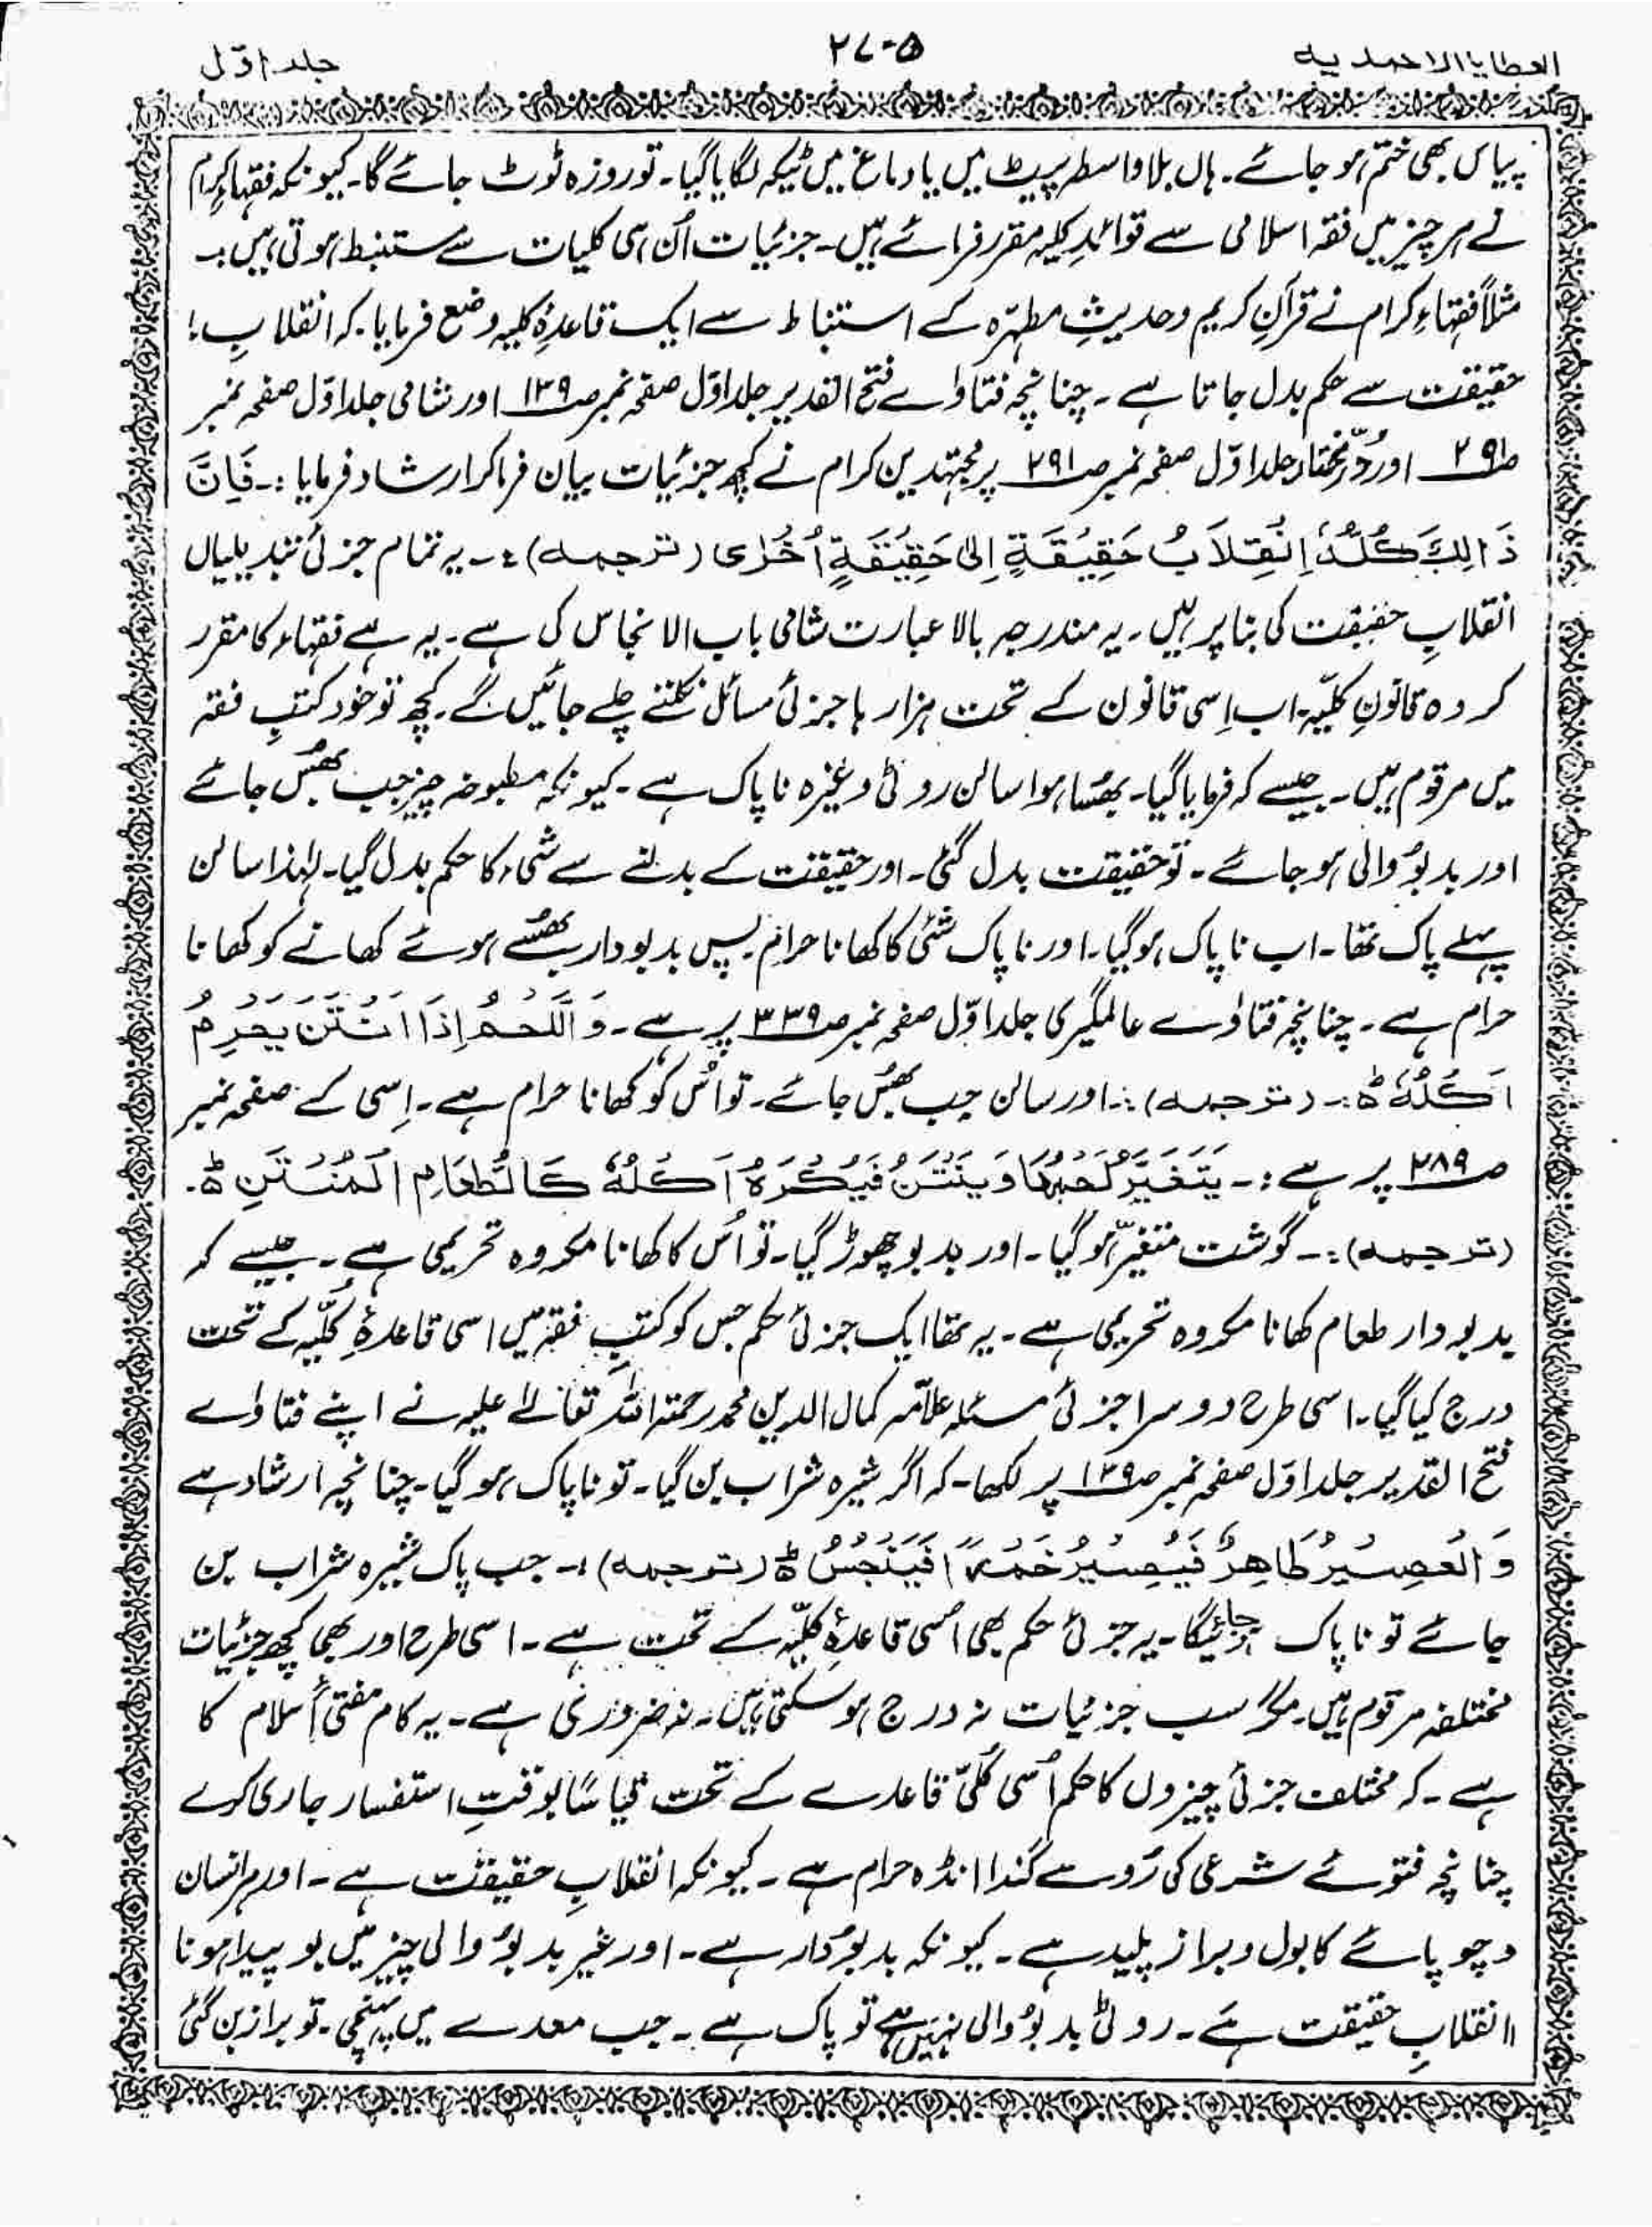 العطایا الاحمدیہ
۲۷۰۵
جلد اوّل
پیاس بھی ختم ہو جائے۔ ہاں بلا واسطہ پیٹ میں یا دماغ میں ٹیکہ لگایا گیا۔ تو روزہ ٹوٹ جائے گا۔ کیونکہ فقہاءِ کرام
نے ہر چیز میں فقہ اسلامی سے قوائدِ کلیہ مقرر فرمائے ہیں۔ جزئیات اُن ہی کلیات سے مستنبط ہوتی ہیں :۔
مثلاً فقہاءِ کرام نے قرآنِ کریم و حدیثِ مطہّرہ کے استنباط سے ایک قاعدۂِ کلیہ وضع فرمایا۔ کہ انقلابِ !
حقیقت سے حکم بدل جاتا ہے ۔ چنانچہ فتاواے فتح القدیر جلد اوّل صفحہ نمبر ص۱۳۹ اور شامی جلد اوّل صفحہ نمبر
ص۲۹۱ اور دُرِّ مختار جلد اوّل صفحہ نمبر ص۲۹۱ پر مجتہدین کرام نے کچھ جزئیات بیان فرما کر ارشاد فرمایا :۔ فَاِنَّ
ذَالِكَ كُلُّهٗ اِنْقِلَابُ حَقِيْقَةٍ اِلىٰ حَقِيْقَةٍ اُخْرٰى (ترجمہ) :۔ یہ تمام جزئی تبدیلیاں
انقلابِ حقیقت کی بنا پر ہیں ۔ یہ مندرجہ بالا عبارت شامی باب الانجاس کی ہے ۔ یہ ہے فقہاء کا مقرر
کردہ قانونِ کلیّہ۔ اب اِسی قانون کے تحت ہزار ہا جزئی مسائل نکلتے چلے جائیں گے ۔ کچھ تو خود کتبِ فقہ
میں مرقوم ہیں ۔ جیسے کہ فرمایا گیا۔ بھُسا ہوا سالن روٹی وغیرہ ناپاک ہے ۔ کیونکہ مطبوخہ چیز جب بھُس جائے
اور بدبوُ والی ہو جائے ۔ تو حقیقت بدل گئی ۔ اور حقیقت کے بدلنے سے شیء کا حکم بدل گیا۔ لہٰذا سالن
پہلے پاک تھا۔ اب ناپاک ہو گیا۔ اور ناپاک شئی کا کھانا حرام۔ پس بدبودار بھُسے ہوئے کھانے کو کھانا
حرام ہے ۔ چنانچہ فتاوٰے عالمگیری جلد اوّل صفحہ نمبر ص۳۳۹ پر ہے ۔ وَ اللَّحْمُ اِذَا اَنْتَنَ يَحْرِمُ
اَكْلُهٗ ط :۔ (ترجمہ) :۔ اور سالن جب بھُس جائے ۔ تو اُس کو کھانا حرام ہے ۔ اِسی کے صفحہ نمبر
ص۲۸۹ پر ہے :۔ يَتَغَيَّرُ لَحْمُهَا وَيَنْتَنُ فَيُكْرَهُ اَكْلُهٗ كَالطَّعَامِ الْمُنْتَنِ ط ۔
(ترجمہ) :۔ گوشت متغیرّ ہو گیا ۔ اور بدبو چھوڑ گیا ۔ تو اُس کا کھانا مکروہ تحریمی ہے ۔ جیسے کہ
بدبودار طعام کھانا مکروہ تحریمی ہے ۔ یہ تھا ایک جزئی حکم جس کو کتبِ فقہ میں اسی قاعدۂِ کُلّیہ کے تحت
درج کیا گیا۔ اسی طرح دوسرا جزئی مسئلہ علامّہ کمال الدین محمد رحمتہ اللہ تعالےٰ علیہ نے اپنے فتاواے
فتح القدیر جلد اوّل صفحہ نمبر ص۱۳۹ پر لکھا۔ کہ اگر شیرہ شراب بن گیا ۔ تو ناپاک ہو گیا۔ چنانچہ ارشاد ہے
وَ الْعَصِيْرُ طَاهِرٌ فَيُصِيْرُ خَمْرًا فَيَنْجُسُ ط (ترجمہ) :۔ جب پاک شیرہ شراب بن
جائے تو ناپاک ہو جائیگا۔ یہ جزئی حکم بھی اُسی قاعدۂِ کلیّہ کے تحت ہے ۔ اسی طرح اور بھی کچھ جزئیات
مختلفہ مرقوم ہیں۔ مگر سب جزئیات نہ درج ہو سکتی ہیں ۔ نہ ضروری ہے ۔ یہ کام مفتیٔ اسلام کا
ہے ۔ کہ مختلف جزئی چیزوں کا حکم اُسی کُلّی قاعدے کے تحت قیاسًا بوقتِ استفسار جاری کرے
چنانچہ فتوئے شرعی کی رُو سے گندا انڈہ حرام ہے ۔ کیونکہ انقلابِ حقیقت ہے ۔ اور ہر انسان
و چوپائے کا بول و براز پلید ہے ۔ کیونکہ بدبوُدار ہے ۔ اور غیر بدبوُ والی چیز میں بو پیدا ہونا
انقلابِ حقیقت ہے ۔ روٹی بدبوُ والی نہیں ہے تو پاک ہے ۔ جب معدے میں پہنچی ۔ تو براز بن گئی